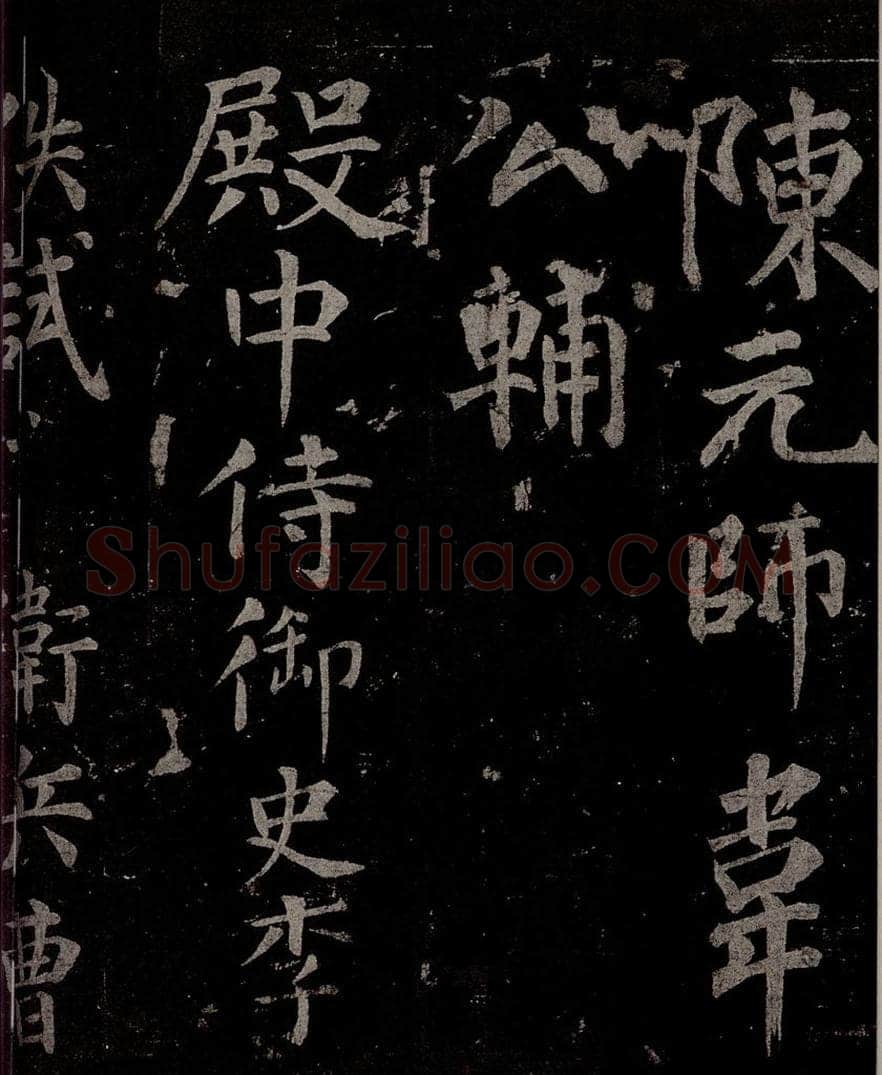 陳元師韋
公輔
殿中侍御史李
佚試 衛兵曹
Shufaziliao.COM